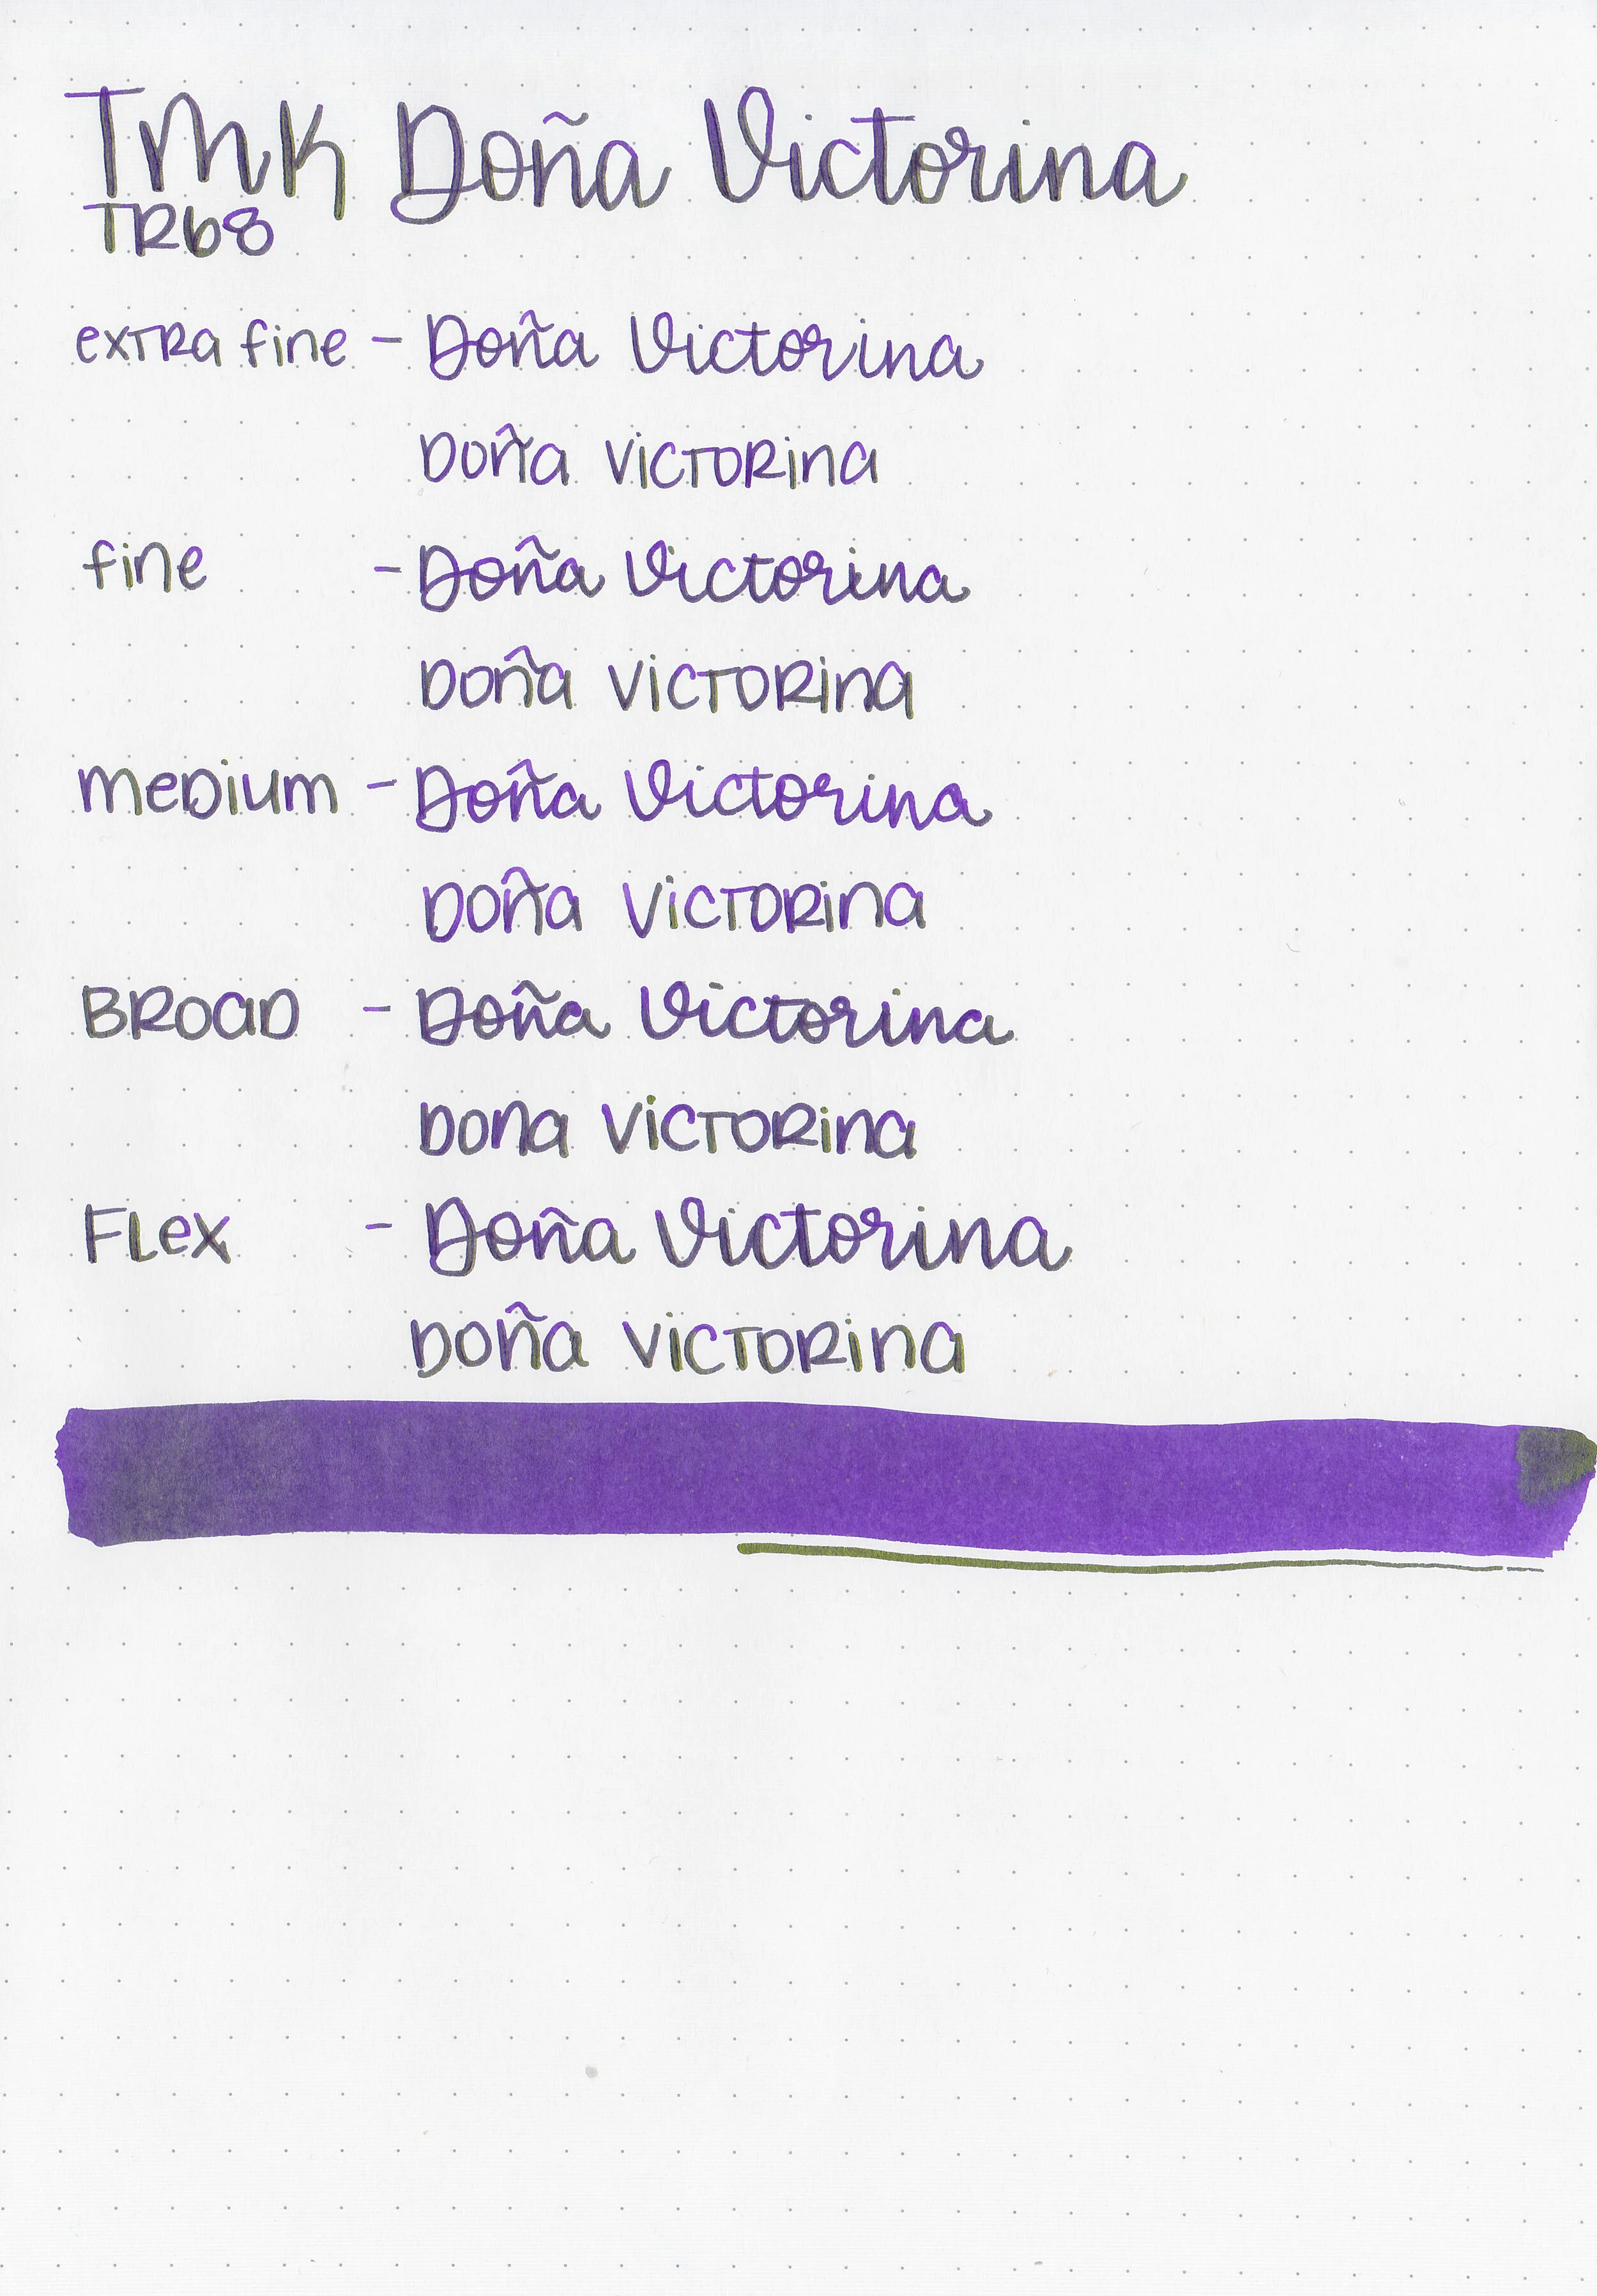 TMK Doña Victorina
TR68
extra fine - Doña Victorina
Doña Victorina
fine - Doña Victorina
Doña Victorina
medium - Doña Victorina
Doña Victorina
BROAD - Doña Victorina
Dona Victorina
Flex - Doña Victorina
Doña Victorina